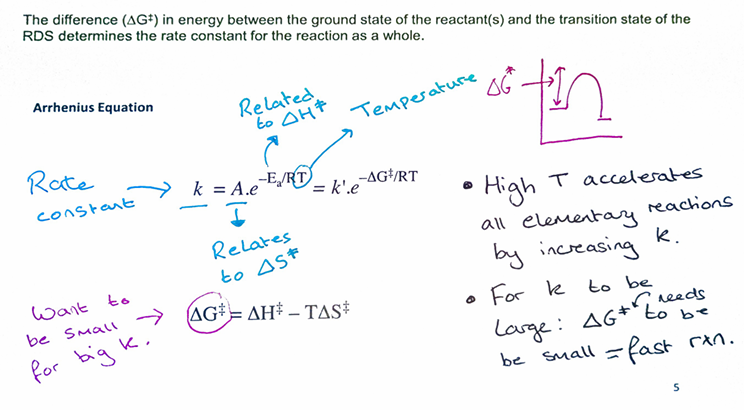 The difference (ΔG‡) in energy between the ground state of the reactant(s) and the transition state of the
RDS determines the rate constant for the reaction as a whole.
ΔG‡
Arrhenius Equation
Related
to ΔH‡
Temperature
Rate
constant
k = A.e^–Eₐ/RT = k'.e^–ΔG‡/RT
Relates
to ΔS‡
Want to
be small
for big k.
ΔG‡ = ΔH‡ – TΔS‡
• High T accelerates
all elementary reactions
by increasing k.
• For k to be
large: ΔG‡ needs
to be
be small = fast rxn.
5